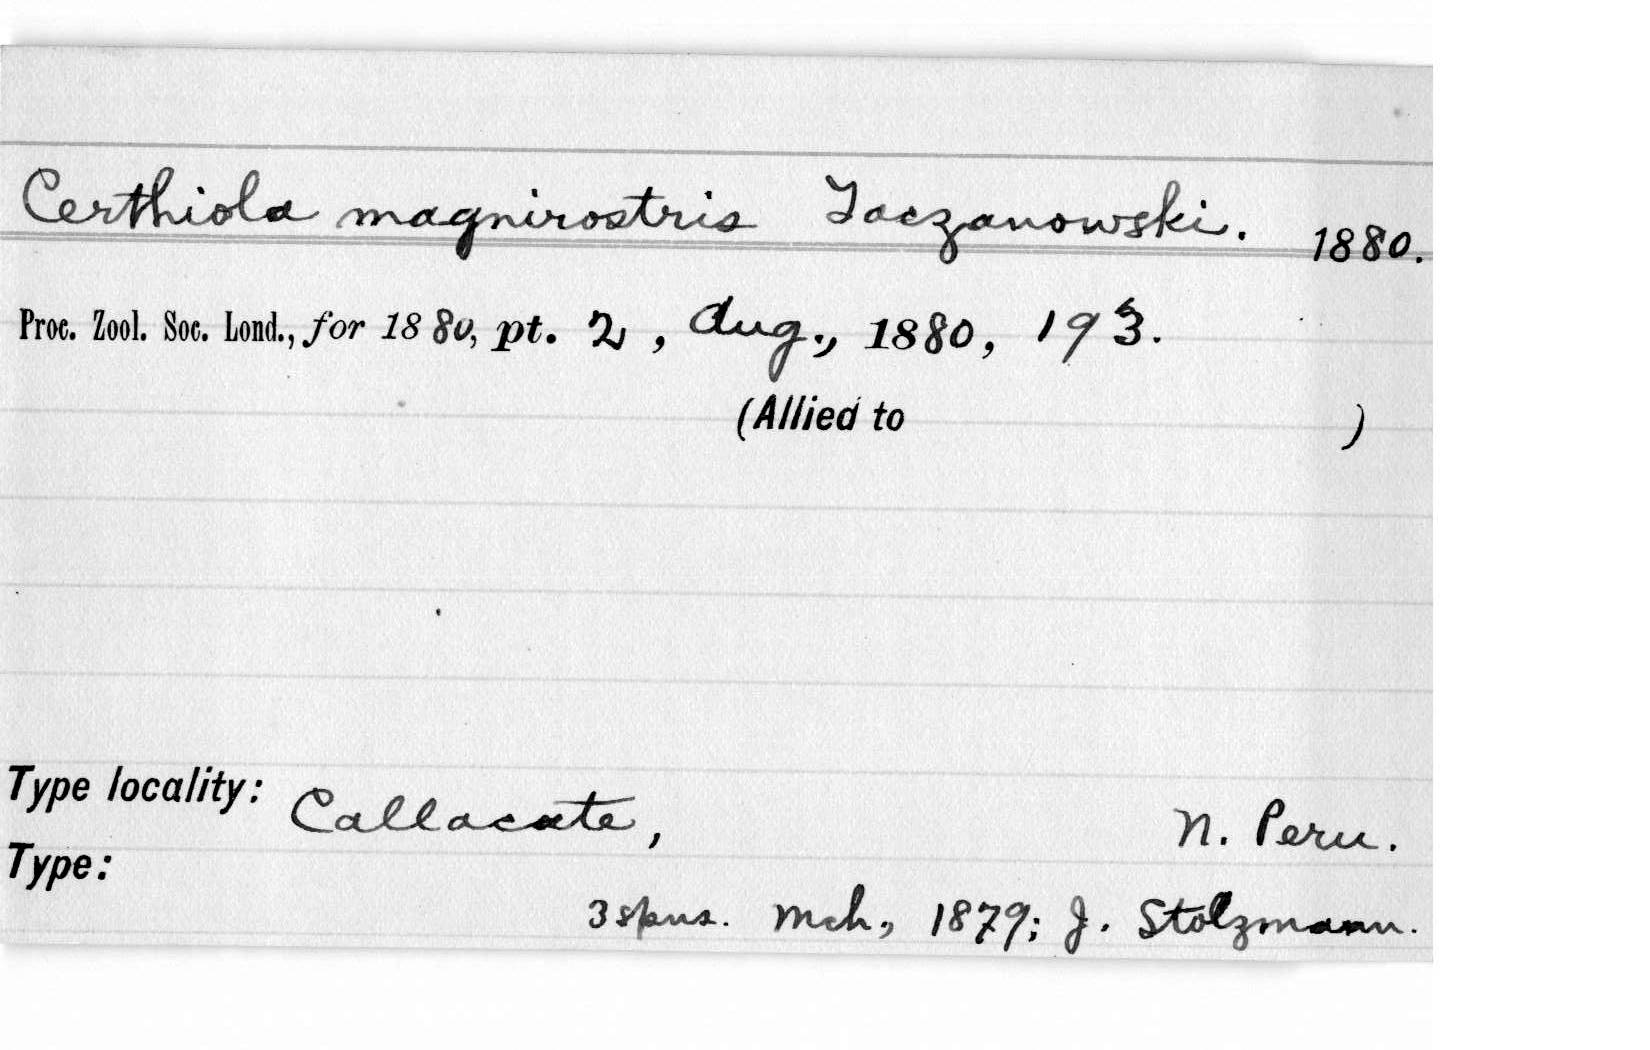 Certhiola magnirostris Taczanowski. 1880.
Proc. Zool. Soc. Lond., for 1880, pt. 2, Aug., 1880, 193.
(Allied to )
Type locality: Callacate, N. Peru.
Type:
3 spns. Mch., 1879; J. Stolzmann.